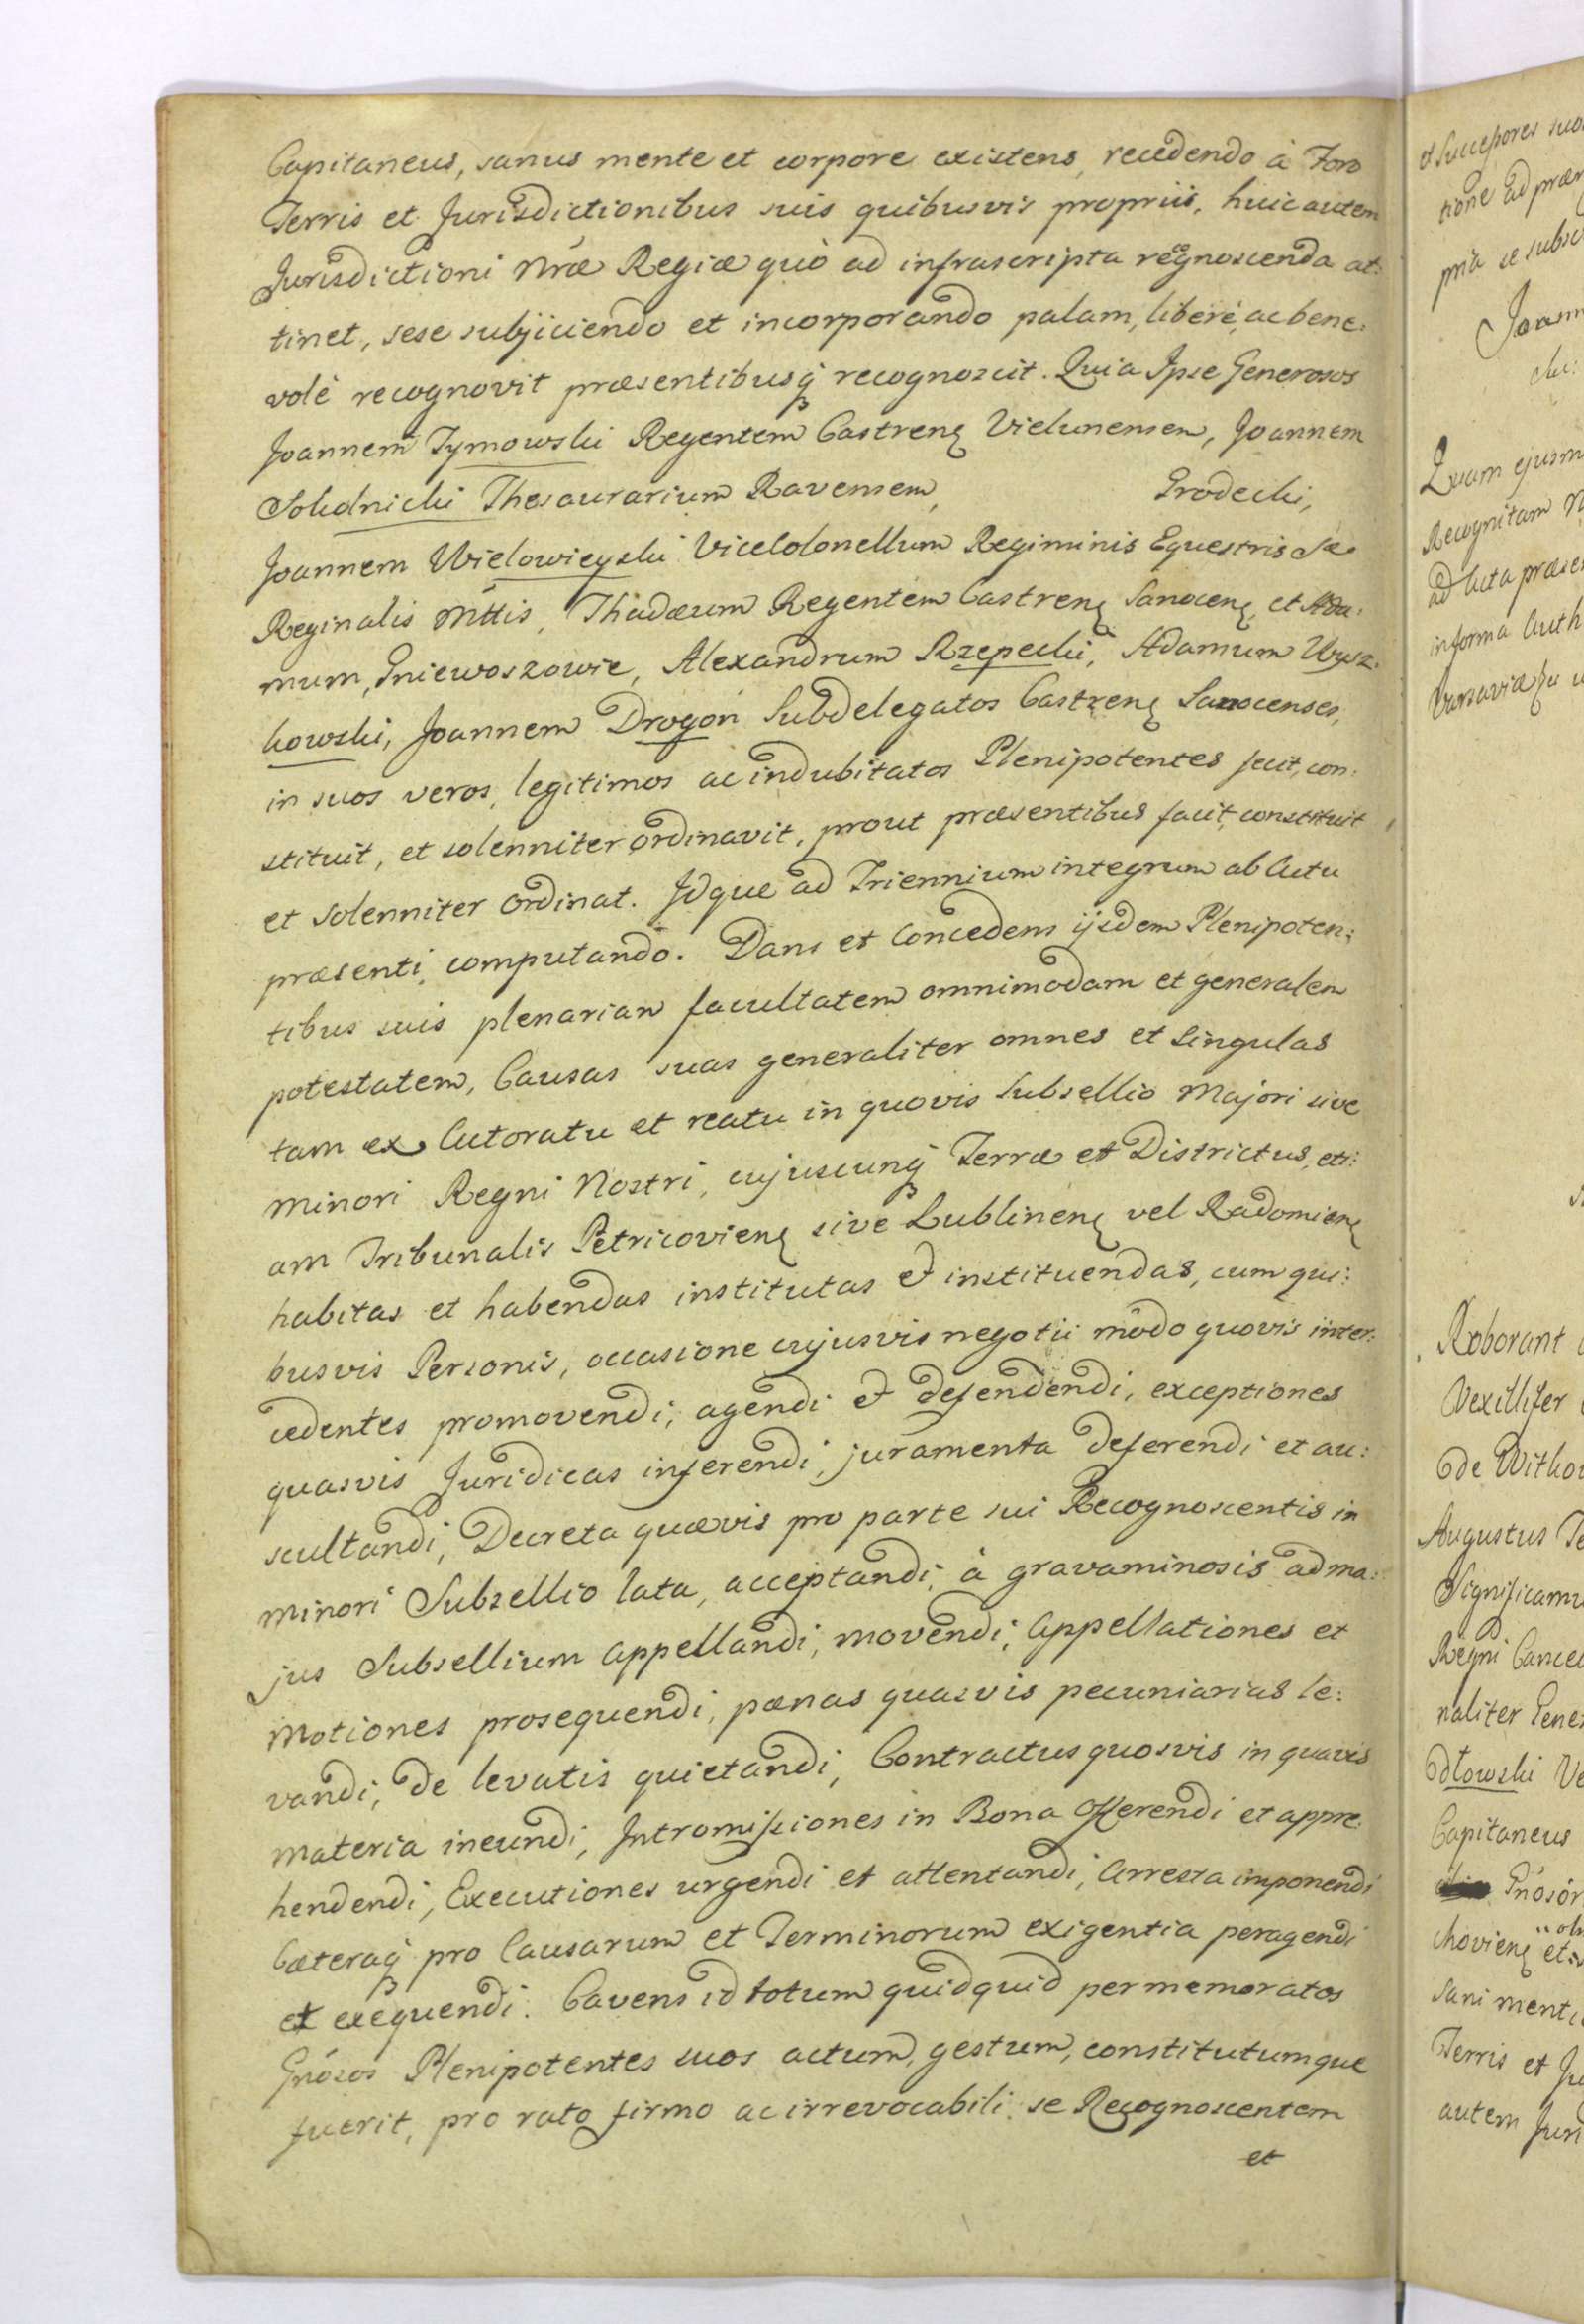 Capitaneus, sanus mente et corpore existens, recedendo à Foro
Terris et Jurisdictionibus suis quibusvis propriis, huic autem
Jurisdictioni Nræ Regiæ quò ad infrascripta recognoscenda at:
tinet, sese subjiciendo et incorporando palam, liberè, ac bene:
volè recognovit præsentibusq́ recognoscit. Quia Ipse Generosos
Joannem Tymowski Regentem Castrenȩ Vielunensem, Joannem
Thesaurarium Ravensem, Grodecki,
Joannem Wielowieyski ViceColonellum Regiminis Equestris Sæ
Reginalis Mttis, Thadæum Regentem Castrenȩ Sanocenȩ, et Ada:
mum, Gniewoszowie, Alexandrum Rzepecki, Adamum Wysz:
kowski, Joannem Drogoń Subdelegatos Castrenȩ Sanocenses,
in suos veros, legitimos ac indubitatos Plenipotentes fecit, con:
stituit, et solenniter ordinavit, prout præsentibus facit, constituit
et solenniter ordinat. Idque ad Triennium integrum ab Actu
præsenti computando. Dans et Concedens ijsdem Plenipoten:
tibus suis plenariam facultatem omnimodam et generalem
potestatem, Causas suas generaliter omnes et singulas
tam ex Actoratu et reatu in quovis Subsellio Majori sive
minori Regni Nostri, cujuscunq́ Terræ et Districtus, eti:
am Tribunalis Petricovienȩ sive Lublinenȩ vel Radomienȩ
habitas et habendas institutas et instituendas, cum qui:
busvis Personis, occasione cujusvis negotii modo quovis inter:
cedentes promovendi, agendi et defendendi, exceptiones
quasvis Juridicas inferendi, juramenta deferendi et au:
scultandi, Decreta quævis pro parte sui Recognoscentis in
minori Subsellio lata, acceptandi, à gravaminosis ad ma:
jus Subsellium appellandi, movendi, Appellationes et
Motiones prosequendi, pœnas quasvis pecuniarias le:
vandi, de levatis quietandi, Contractus quosvis in quavis
materia ineundi, Intromissiones in Bona offerendi et appre:
hendendi, Executiones urgendi et attentandi, Arresta imponendi
Cæteraq́ pro Causarum et Terminorum exigentia peragendi
et exequendi. Cavens id totum quidquid per memoratos
Gnósos Plenipotentes suos actum, gestum, constitutumque
fuerit, pro rato firmo ac irrevocabili se Recognoscentem
et
et Successores suos
tione ad
pria se subsc
Joann
Quam ejusm
Recognitam N
ad Acta præse
in forma Auth
Roborant
Vexillifer
de Witkow
Augustus
Significamu
Regni Cancel
naliter Gene
Capitaneus
Gnósór
chovienȩ et
Sani mente
Terris et Ju
autem Juri